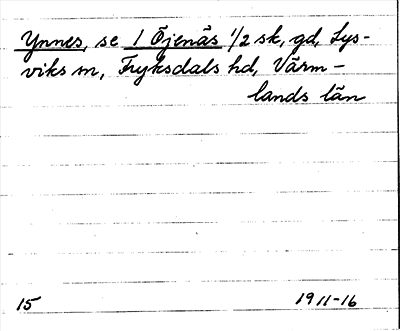 Ynnes, se 1 Öjenäs 1/2 sk, gd, Lys-
viks sn, Fryksdals hd, Värm-
lands län
15
1911-16